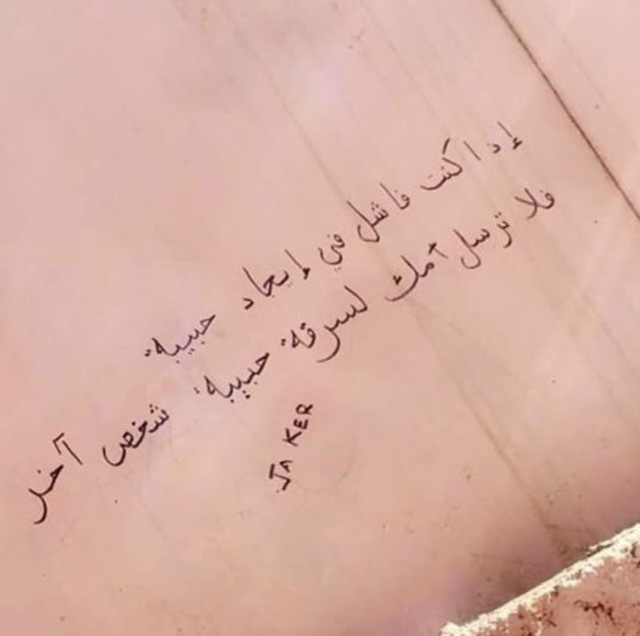 إذا كنت فاشل في إيجاد حبيبة
فلا ترسل أمك لسرقة حبيبة شخص آخر
JA KER